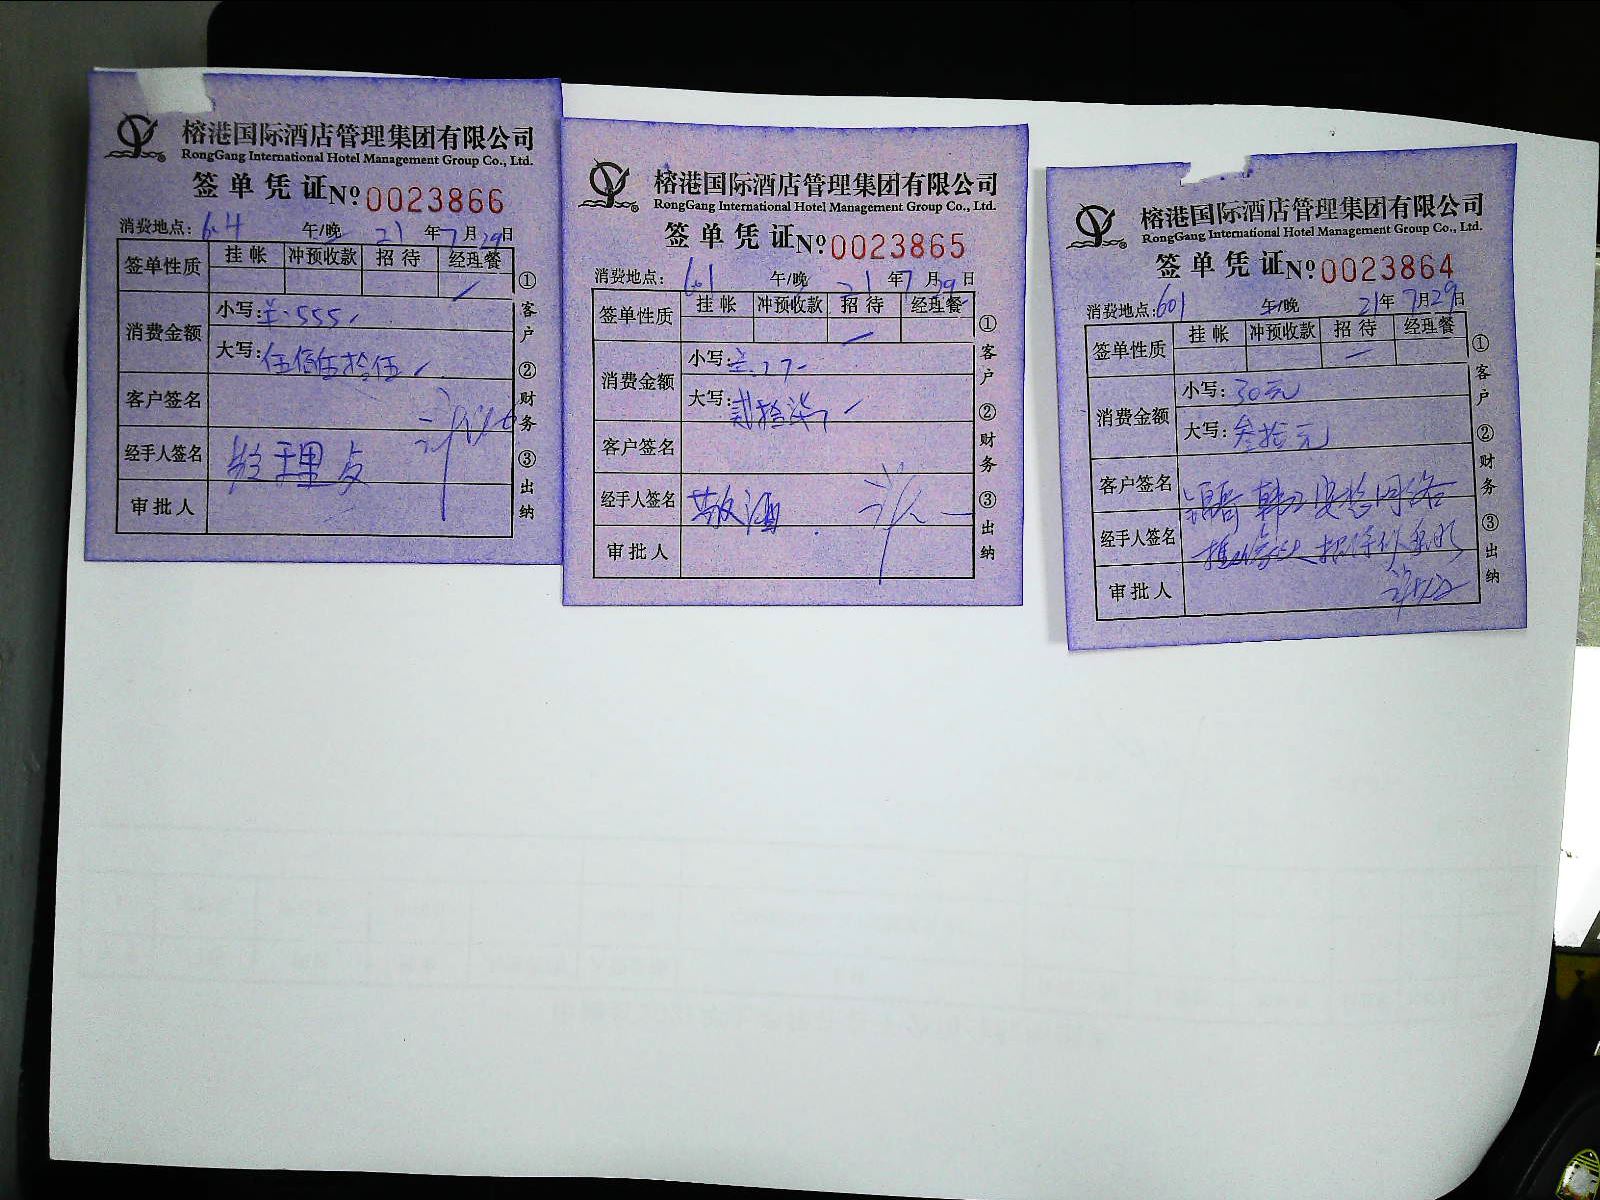 榕港国际酒店管理集团有限公司
RongGang International Hotel Management Group Co., Ltd.
签单凭证 No 0023866
消费地点: 午/晚 21年7月29日
签单性质 挂帐 冲预收款 招待 经理餐
消费金额 小写: 555
大写: 伍佰伍拾伍
客户签名
经手人签名 经理
审批人
①客户 ②财务 ③出纳
榕港国际酒店管理集团有限公司
RongGang International Hotel Management Group Co., Ltd.
签单凭证 No 0023865
消费地点: 601 午/晚 21年7月29日
签单性质 挂帐 冲预收款 招待 经理餐
消费金额 小写: 27
大写: 贰拾柒
客户签名
经手人签名 敬酒
审批人
①客户 ②财务 ③出纳
榕港国际酒店管理集团有限公司
RongGang International Hotel Management Group Co., Ltd.
签单凭证 No 0023864
消费地点: 601 午/晚 21年7月29日
签单性质 挂帐 冲预收款 招待 经理餐
消费金额 小写: 30元
大写: 叁拾元
客户签名
经手人签名
审批人
①客户 ②财务 ③出纳